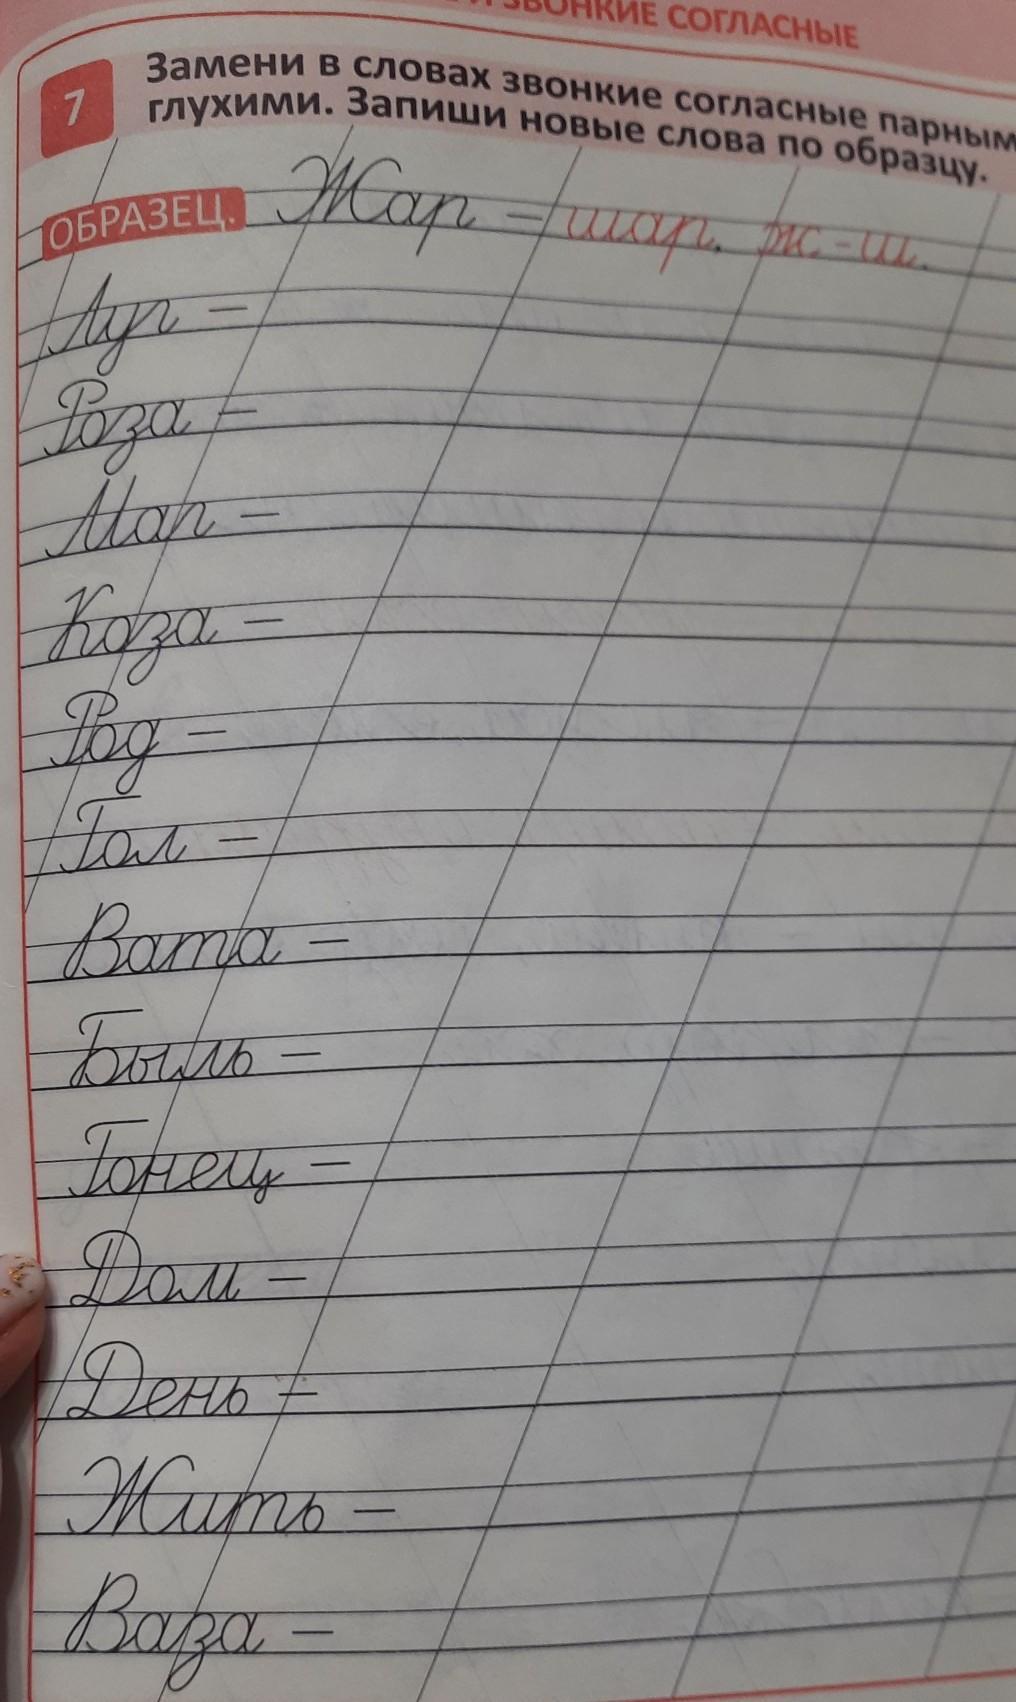 И ЗВОНКИЕ СОГЛАСНЫЕ
7 Замени в словах звонкие согласные парным
глухими. Запиши новые слова по образцу.
ОБРАЗЕЦ. Жар – шар. ж-ш.
Луг –
Роза –
Маг –
Коза –
Род –
Гол –
Вата –
Быль –
Гонец –
Дом –
День –
Жить –
Ваза –